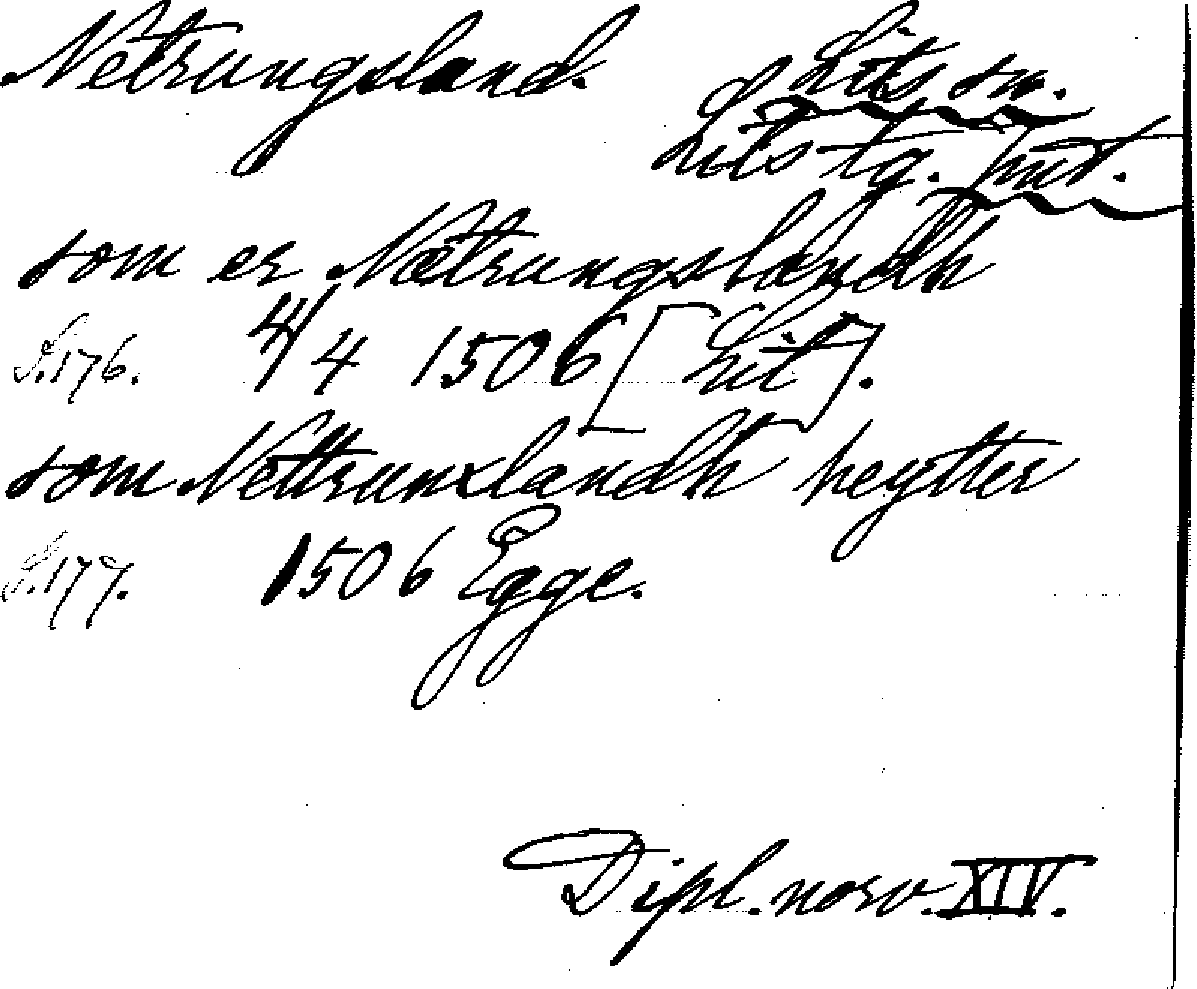 Netrungsland. Lits sn.
Lits tg. Jmt.
som er Netrungslandh
S. 176. 4/4 1506 [Lit].
som Nettrunxlandh heytter
S. 177. 1506 Egge.
Dipl. norv. XIV.